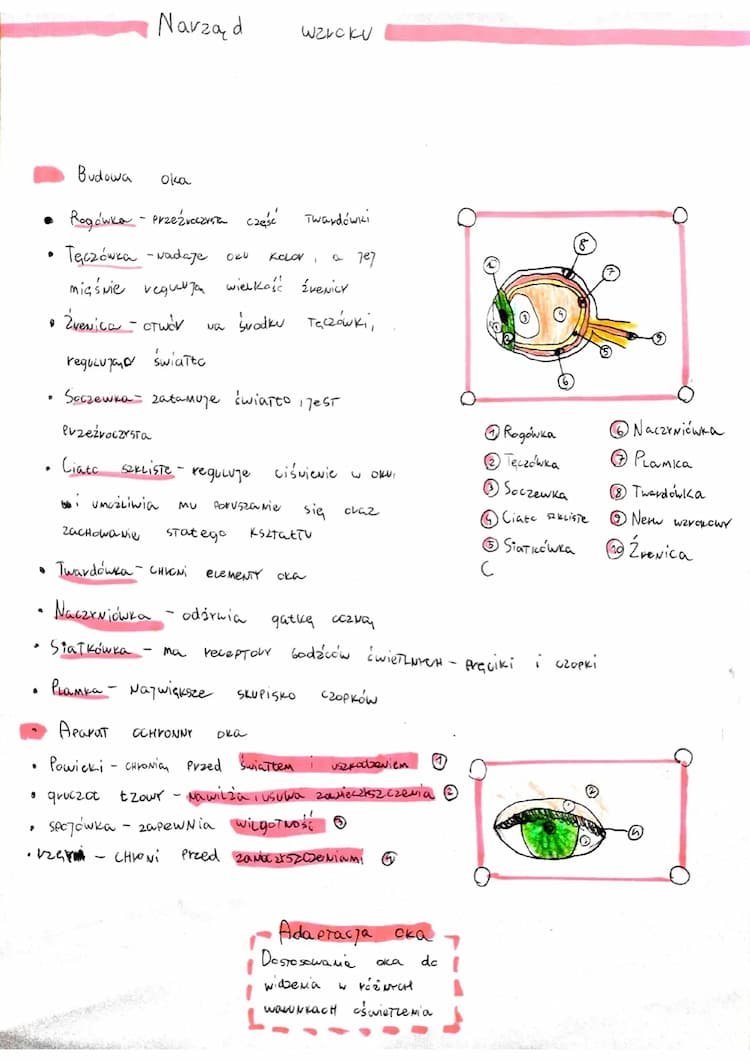 Narząd wzroku
Budowa oka
Rogówka - przeźroczysta część twardówki
Tęczówka - nadaje oku kolor, a jej
mięśnie regulują wielkość źrenicy
Źrenica - otwór na środku tęczówki,
regulująca światło
Soczewka - załamuje światło, jest
przeźroczysta
Ciało szkliste - reguluje ciśnienie w oku,
i umożliwia mu poruszanie się oraz
zachowanie stałego kształtu
Twardówka - chroni elementy oka
Naczyniówka - odżywia gałkę oczną
Siatkówka - ma receptory bodźców świetlnych - pręciki i czopki
Plamka - największe skupisko czopków
1 8 7 3 4 10 2 5 9 6
1 Rogówka
2 Tęczówka
3 Soczewka
4 Ciało szkliste
5 Siatkówka
C
6 Naczyniówka
7 Plamka
8 Twardówka
9 Nerw wzrokowy
10 Źrenica
Aparat ochronny oka
Powieki - chronią przed światłem i uszkodzeniem 1
gruczoł łzowy - nawilża i usuwa zanieczyszczenia 2
spojówka - zapewnia wilgotność 3
rzęsy - chroni przed zanieczyszczeniami 4
1 2 3 4
Adaptacja oka
Dostosowanie oka do
widzenia w różnych
warunkach oświetlenia